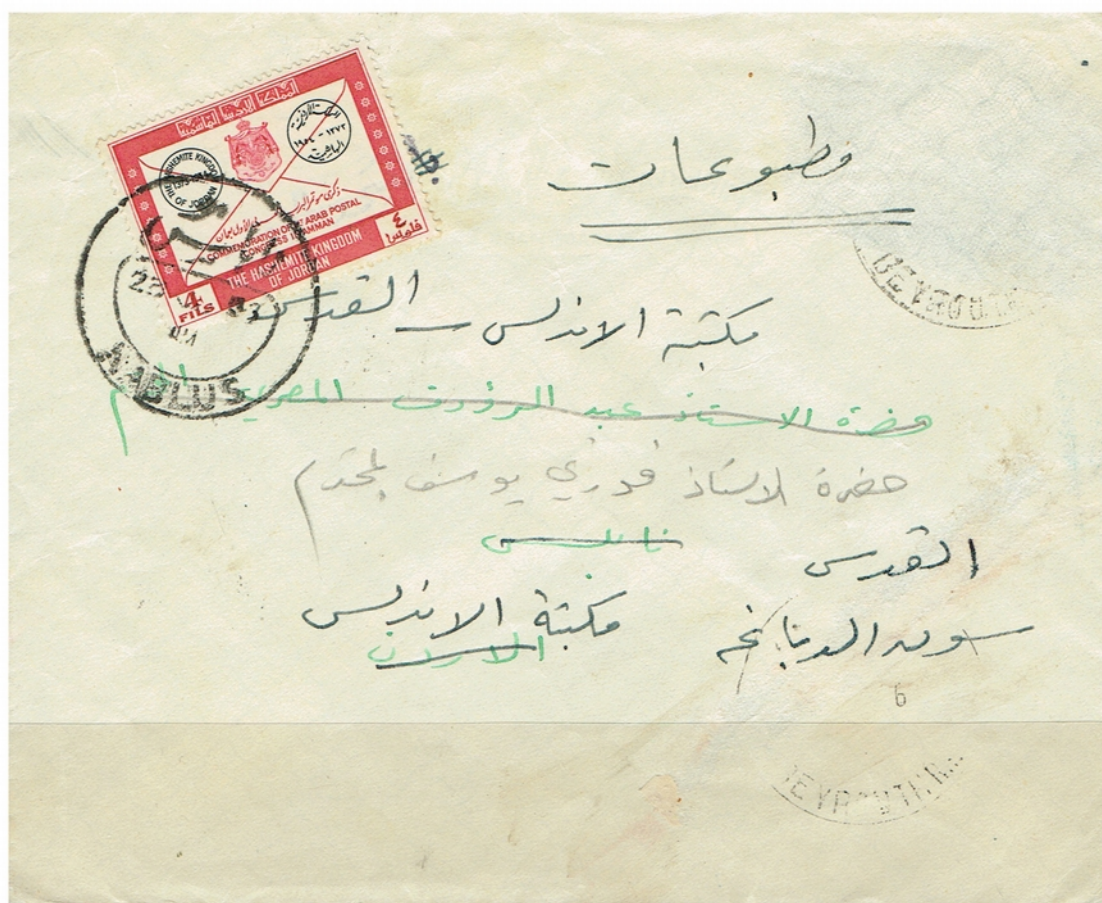 المملكة الاردنية الهاشمية
THE HASHEMITE KINGDOM OF JORDAN
١٣٧٣ - ١٩٥٤
COMMEMORATION OF ARAB POSTAL
CONGRESS AMMAN
THE HASHEMITE KINGDOM
OF JORDAN
4
FILS
٤
فلس
NABLUS
مطبوعات
BEYROUTH
مكتبة الاندلس - القدس
حضرة الاستاذ عبد الرؤوف المصري
حضرة الاستاذ فوزي يوسف المحترم
نابلس
القدس
مكتبة الاندلس
سوق الدباغة
الاردن
6
BEYROUTH